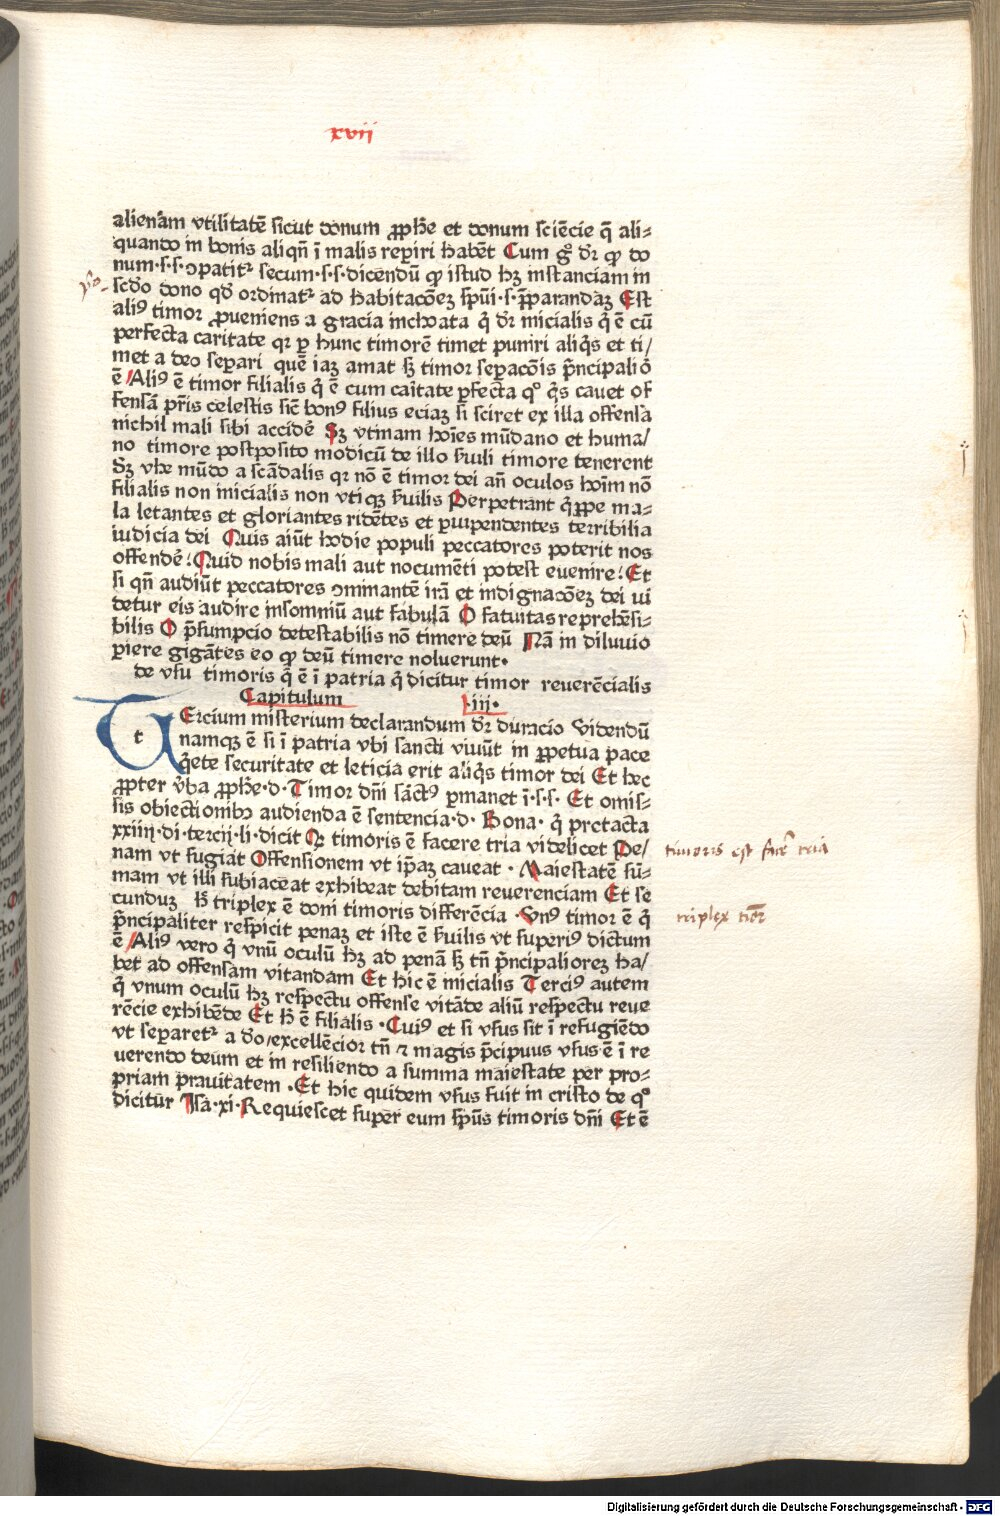 xvii
alienam vtilitatē sicut donum ꝓphe et donum sciēcie q̄ ali⸗
quando in bonis aliqn̄ ī malis reꝑiri habēt Cum gͦ dr̄ ꝙ do
num·s·s·ꝯpatitᷣ secum·s·s·dicendū ꝙ istud hꝫ instanciam in
scd̄o dono qd̄ ordinatᷣ ad habitacōeꝫ spūi·s·p̄parandaꝫ Est
aliꝰ timor ꝓueniens a gracia inchoata q̇ dr̄ inicialis q̇ ē cū
perfecta caritate qꝛ ꝑ hunc timorē timet puniri aliq̇s et ti/
met a deo seꝑari quē iaꝫ amat sꝫ timor seꝑacōis p̄ncipalió
ē Aliꝰ ē timor filialis q̇ ē cum caītate ꝑfecta qͦ q̇s cauet of
fensā pr̄is celestis sic̄ bonꝰ filius eciaꝫ si sciret ex illa offensa
nichil mali sibi accidē Sꝫ vtinam hoīes mūdano et huma/
no timore postposito modicū de illo ẜuili timore tenerent
Sꝫ vhe mūdo a scādalis qꝛ nō ē timor dei an̄ oculos hoīm nō
filialis non inicialis non vtiqꝫ ẜuilis Perpetrant q̇ppe ma⸗
la letantes et gloriantes ridētes et ꝑuipendentes terribilia
iudicia dei Quis aiūt hodie populi peccatores poterit nos
offendē? Quid nobis mali aut nocumēti potest euenire? Et
si qn̄ audiūt peccatores ꝯminantē irā et indignacōeꝫ dei ui
detur eis audire insomniū aut fabulā O fatuitas reprehēsi⸗
bilis O p̄sumpcio detestabilis nō timere deū Nā in diluuio
ꝑiere gigātes eo ꝙ deū timere noluerunt·
de vsu timoris q̇ ē ī patria q̇ dicitur timor reuerēcialis
Capitulum ·iii·
TErcium misterium declarandum dr̄ duracio Videndū
namqꝫ ē si ī patria vbi sancti viuūt in ꝑpetua pace
q̇ete securitate et leticia erit aliq̇s timor dei Et hec
ꝓpter v̄ba ꝓphe·d·Timor dn̄i sāctꝰ ꝑmanet ī·s·s· Et omis⸗
sis obiectionibꝫ audienda ē sentencia·d· Bona· q̇ pretacta
xxiiij·di·tercij·li·dicit Qꝫ timoris ē facere tria videlicet Pe/
nam vt fugiat Offensionem vt ip̄aꝫ caueat · Maiestatē sū⸗
mam vt illi subiaceat exhibeat debitam reuerenciam Et se
cunduꝫ ħ triplex ē doni timoris differēcia ·Vnꝰ timor ē q̇
p̄ncipaliter respicit penaꝫ et iste ē ẜuilis vt superiꝰ dictum
ē Aliꝰ vero q̇ vnū oculū hꝫ ad penā sꝫ tn̄ p̄ncipalioreꝫ ha/
bet ad offensam vitandam Et hic ē inicialis Terciꝰ autem
q̇ vnum oculū hꝫ respectu offense vitāde aliū respectu reue
rēcie exhibēde Et ħ ē filialis ·Cuiꝰ et si vsus sit ī refugiēdo
vt seꝑaretᷣ a d̄o/excellēcior tn̄ ⁊ magis p̄cipuus vsus ē ī re
uerendo deum et in resiliendo a summa maiestate per pro⸗
priam prauitatem ·Et hic quidem vsus fuit in cristo de qͦ
dicitur Isa·xi·Requiescet super eum sp̄us timoris dn̄i Et ē
timoris est facē tria
triplex timōr